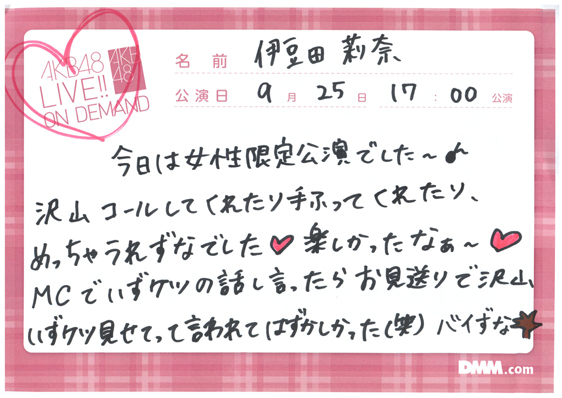 AKB48
LIVE!!
ON DEMAND
AKB
48
名前 伊豆田莉奈
公演日 9月25日 17:00公演
今日は女性限定公演でした〜♪
沢山コールしてくれたり手ふってくれたり、
めっちゃうれずなでした♥楽しかったなぁ〜♥
MCでいずケツの話し言ったらお見送りで沢山
いずケツ見せてって言われてはずかしかった(笑)バイずな★
DMM.com